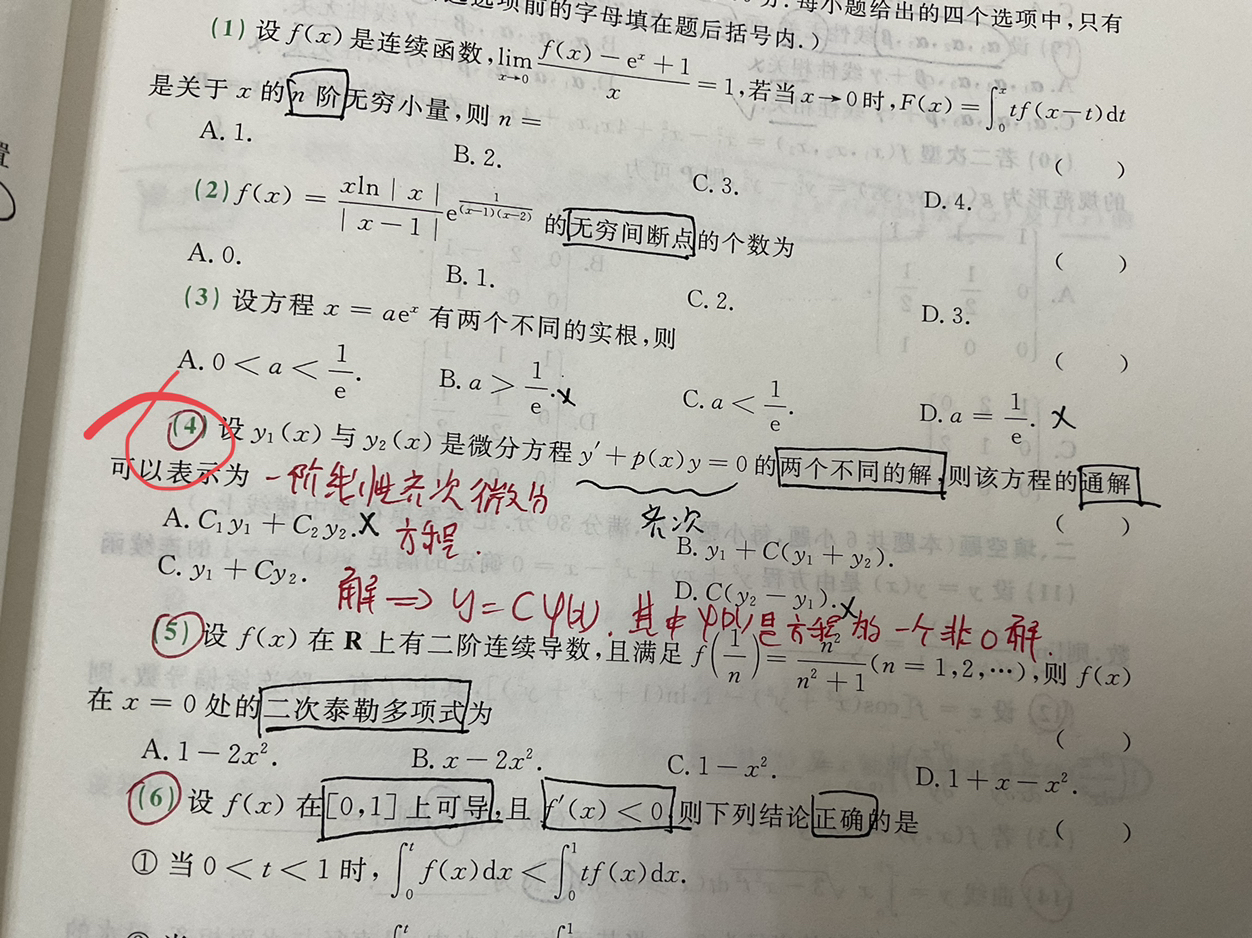 选项前的字母填在题后括号内.)
分.每小题给出的四个选项中,只有
(1) 设 f(x) 是连续函数, lim_{x→0} (f(x) − e^x + 1)/x = 1, 若当 x→0 时, F(x) = ∫_0^x tf(x−t)dt
是关于 x 的 n 阶无穷小量,则 n =
( )
A. 1. B. 2. C. 3. D. 4.
(2) f(x) = (xln|x|)/(|x−1|) e^{1/((x−1)(x−2))} 的无穷间断点的个数为
( )
A. 0. B. 1. C. 2. D. 3.
(3) 设方程 x = ae^x 有两个不同的实根,则
( )
A. 0 < a < 1/e. B. a > 1/e. × C. a < 1/e. D. a = 1/e. ×
(4) 设 y₁(x) 与 y₂(x) 是微分方程 y′ + p(x)y = 0 的两个不同的解,则该方程的通解
可以表示为 一阶线性齐次微分
( )
齐次
A. C₁y₁ + C₂y₂. × 方程. B. y₁ + C(y₁ + y₂).
C. y₁ + Cy₂. D. C(y₂ − y₁). ×
解 ⟹ y = Cφ(x). 其中φ(x)是方程的一个非0解.
(5) 设 f(x) 在 R 上有二阶连续导数,且满足 f(1/n) = n²/(n² + 1) (n = 1,2,⋯),则 f(x)
在 x = 0 处的二次泰勒多项式为
( )
A. 1 − 2x². B. x − 2x². C. 1 − x². D. 1 + x − x².
(6) 设 f(x) 在[0,1]上可导,且 f′(x) < 0,则下列结论正确的是
( )
① 当 0 < t < 1 时, ∫_0^t f(x)dx < ∫_0^1 tf(x)dx.